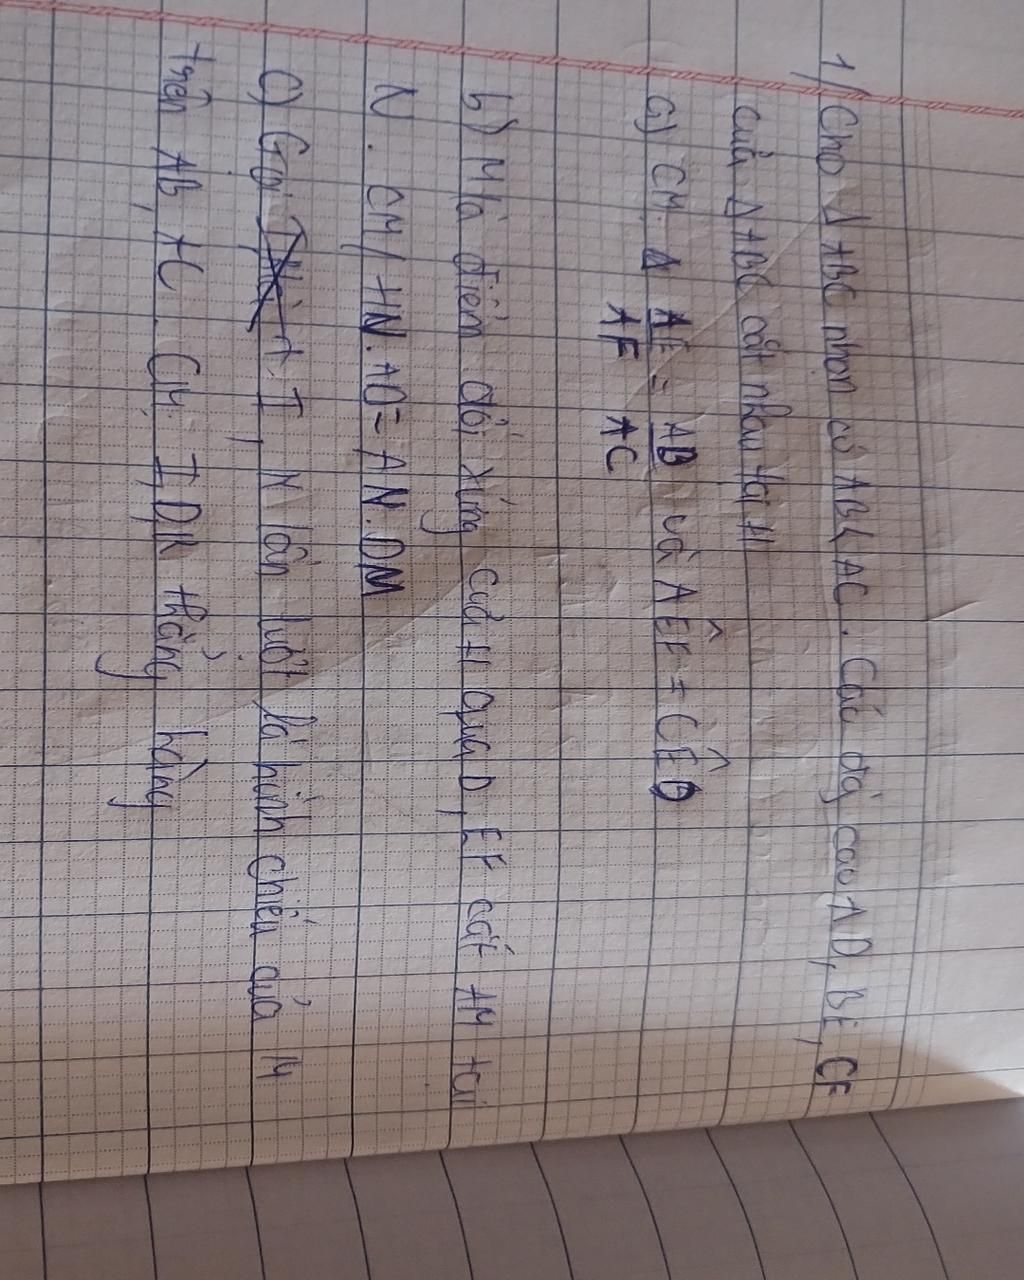 1) Cho Δ ABC nhọn có AB < AC. Các đg cao AD, BE, CF
của Δ ABC cắt nhau tại H
a) CM. AE = AB và AÊF = CÊD
AF AC
b) M là điểm đối xứng của H qua D, EF cắt AM tại
N. CM/ HN.AD = AN.DM
c) Gọi I, K lần lượt là hình chiếu của M
trên AB, AC. CM. I,D,K thẳng hàng